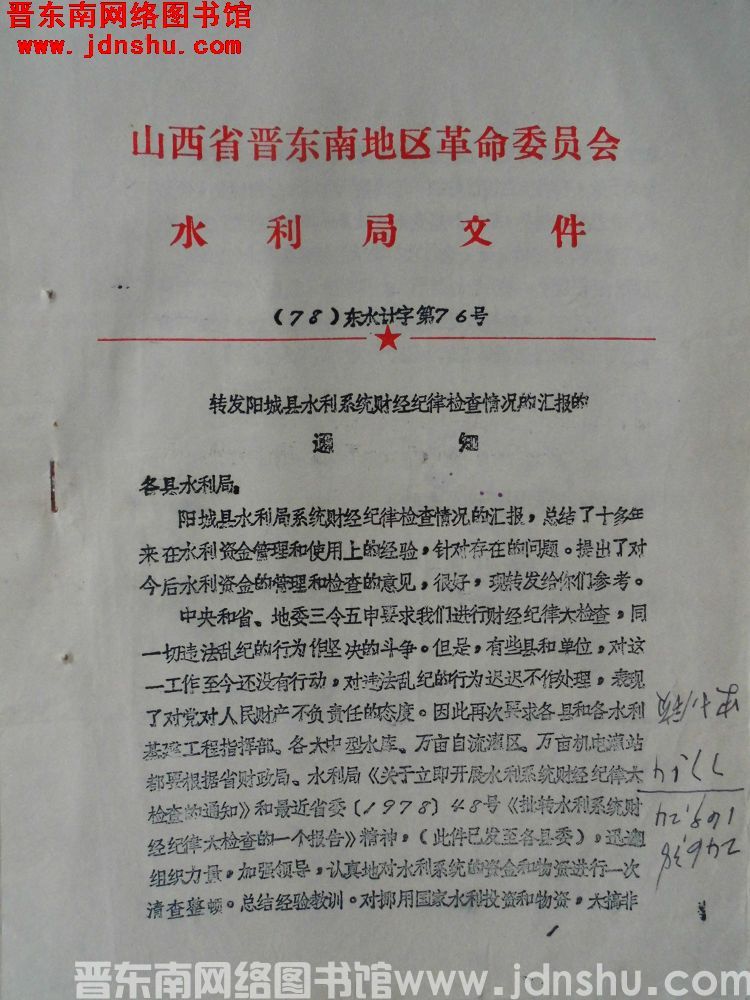 晋东南网络图书馆
www.jdnshu.com
山西省晋东南地区革命委员会
水利局文件
(78)东水计字第76号
转发阳城县水利系统财经纪律检查情况的汇报的
通知
各县水利局：
阳城县水利局系统财经纪律检查情况的汇报，总结了十多年
来在水利资金管理和使用上的经验，针对存在的问题。提出了对
今后水利资金的管理和检查的意见，很好，现转发给你们参考。
中央和省、地委三令五申要求我们进行财经纪律大检查，同
一切违法乱纪的行为作坚决的斗争。但是，有些县和单位，对这
一工作至今还没有行动，对违法乱纪的行为迟迟不作处理，表现
了对党对人民财产不负责任的态度。因此再次要求各县和各水利
基建工程指挥部、各大中型水库、万亩自流灌区、万亩机电灌站
都要根据省财政局、水利局《关于立即开展水利系统财经纪律大
检查的通知》和最近省委(1978)48号《批转水利系统财
经纪律大检查的一个报告》精神，(此件已发至各县委)，迅速
组织力量，加强领导，认真地对水利系统的资金和物资进行一次
清查整顿。总结经验教训。对挪用国家水利投资和物资，大搞非
1
晋东南网络图书馆www.jdnshu.com